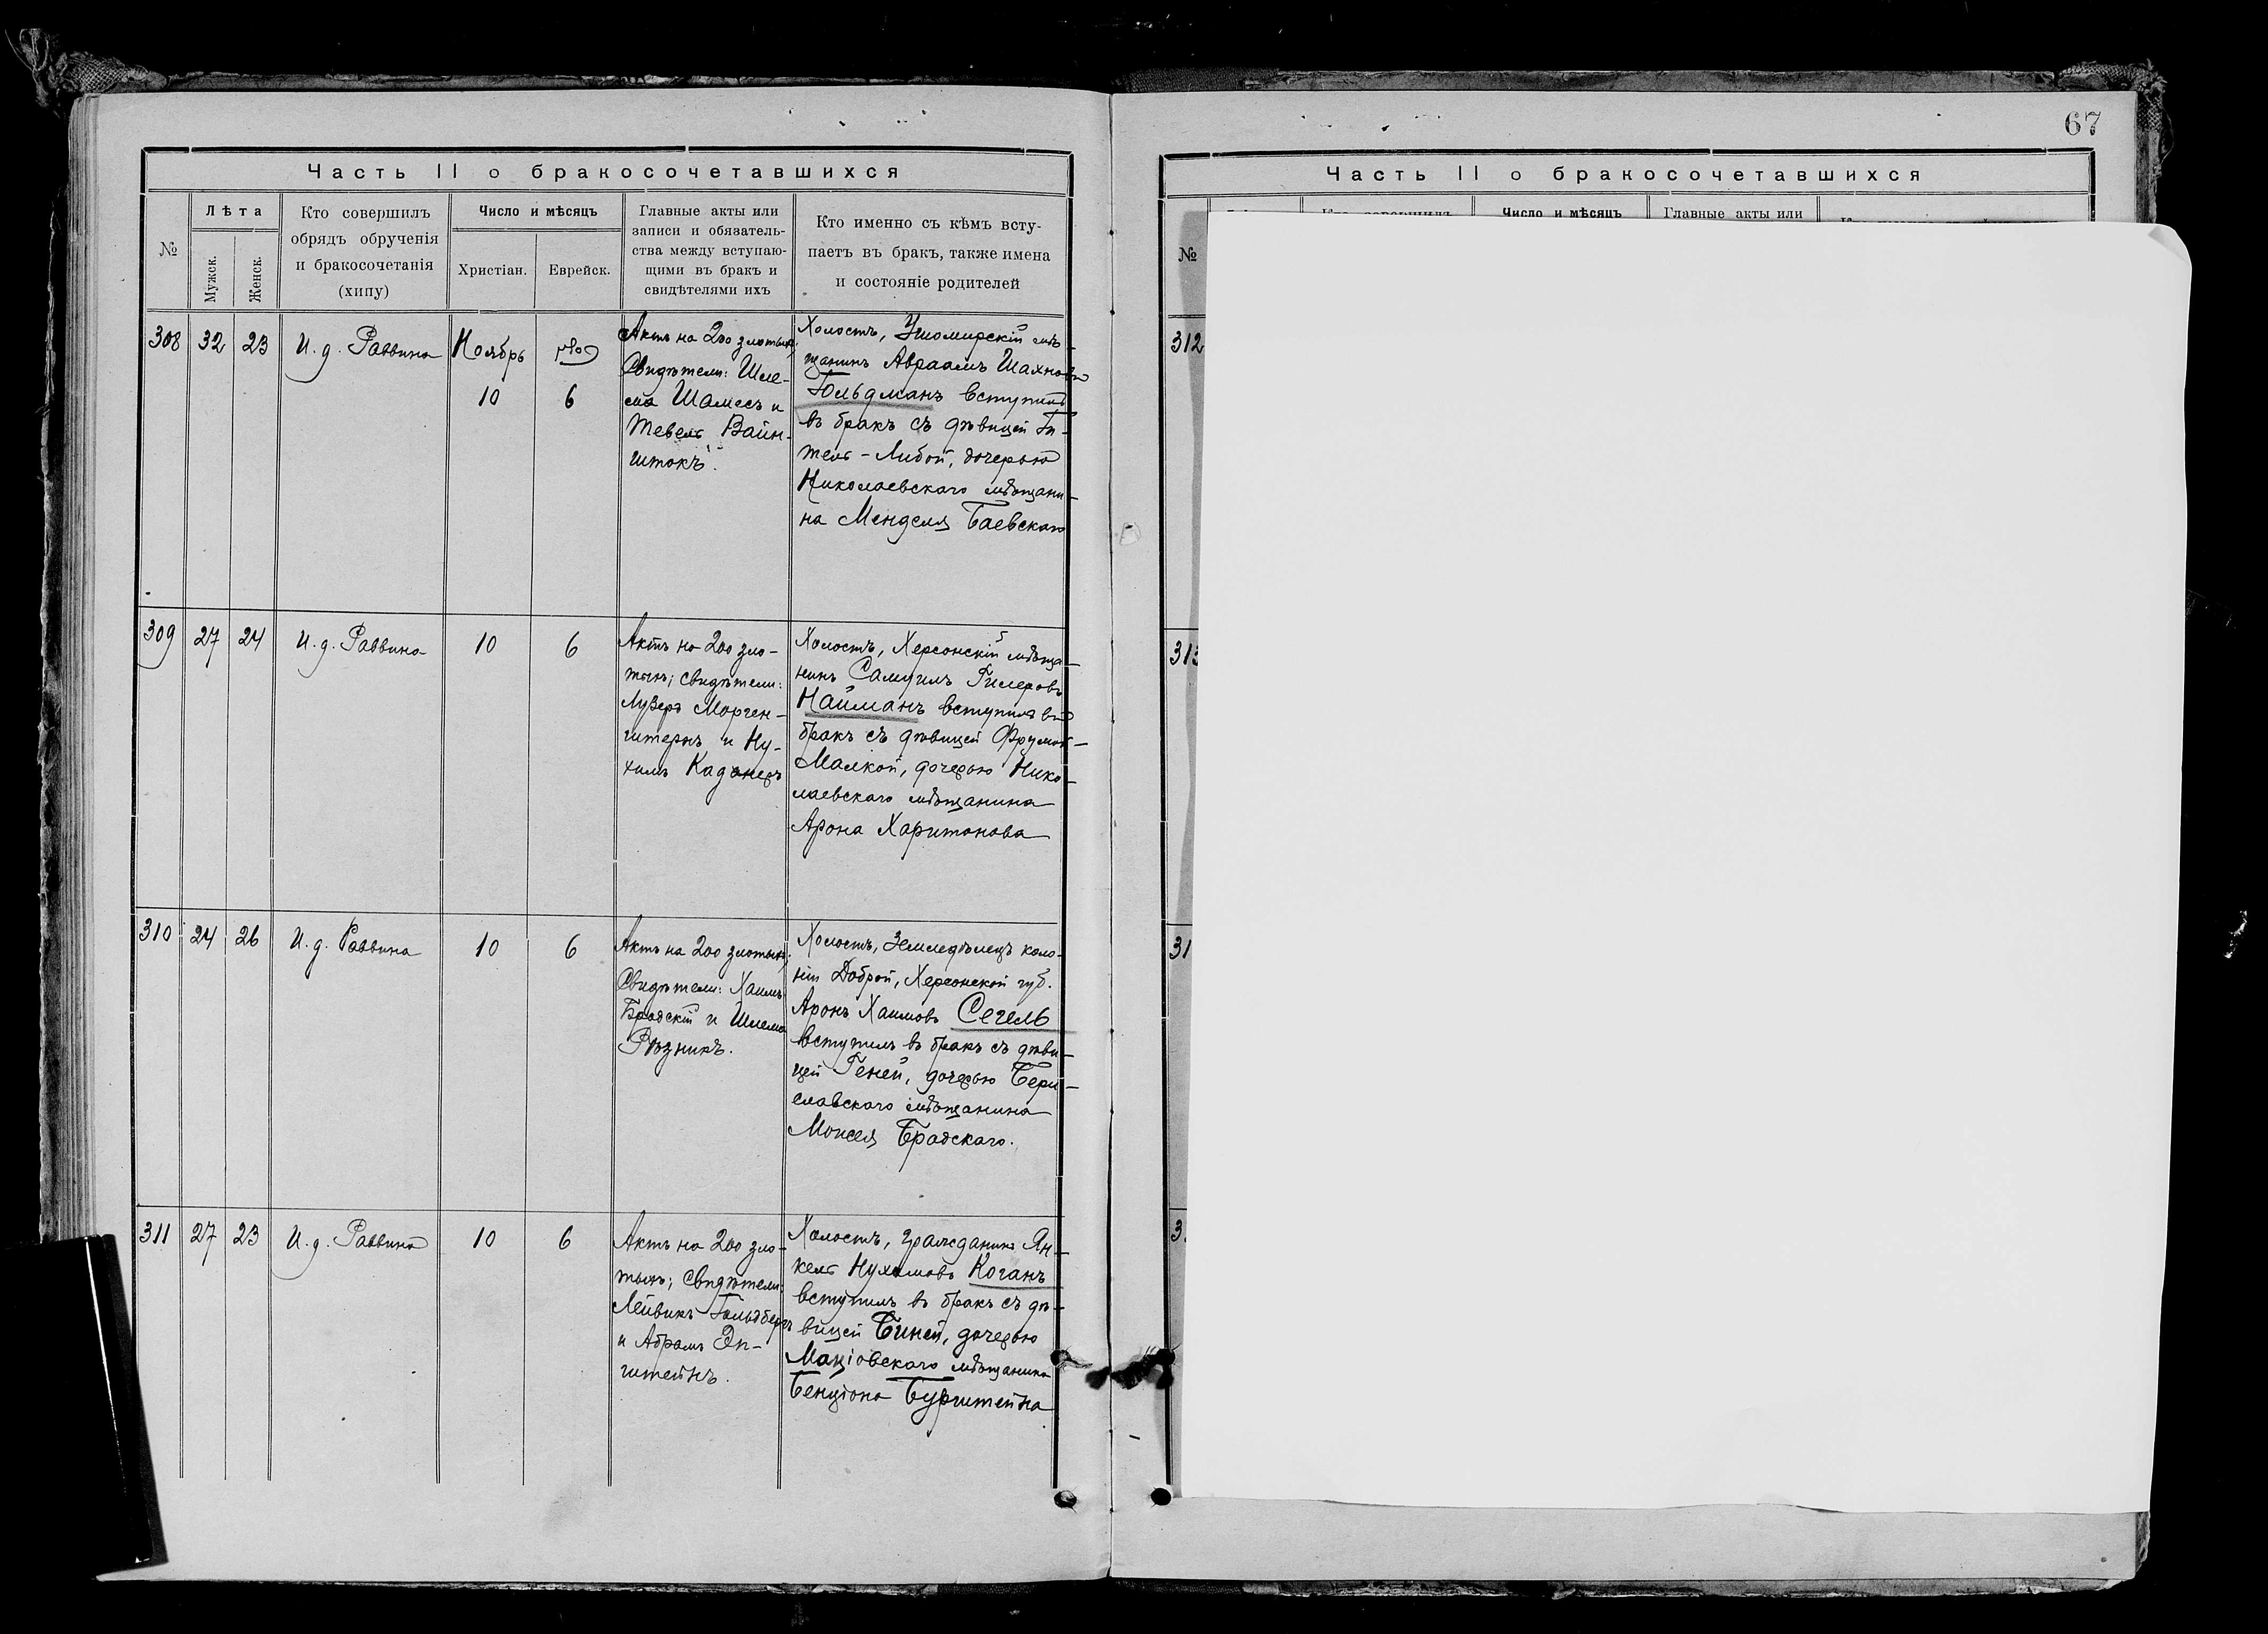 67
Часть II о бракосочетавшихся
№
Лѣта
Мужск.
Женск.
Кто совершилъ
обрядъ обрученія
и бракосочетанія
(хипу)
Число и мѣсяцъ
Христіан.
Еврейск.
Главные акты или
записи и обязатель-
ства между вступаю-
щими въ бракъ и
свидѣтелями ихъ
Кто именно съ кѣмъ всту-
паетъ въ бракъ, также имена
и состояніе родителей
308
32
23
И. д. Раввина
Ноябрь
10
6
Актъ на 200 злотыхъ;
Свидѣтели: Шле-
ма Шамесъ и
Тевель Вайн-
штокъ.
Холостъ, мѣ-
щанинъ Авраамъ Шахновъ
Гольдманъ вступилъ
въ бракъ съ дѣвицей Ги-
тель-Либой, дочерью
Николаевскаго мѣщани-
на Менделя Баевскаго
309
27
24
И. д. Раввина
10
6
Актъ на 200 зло-
тыхъ; свидѣтели:
Лузеръ Морген-
штернъ и Ну-
химъ
Холостъ, Херсонскій мѣща-
нинъ Самуилъ
Найманъ вступилъ въ
бракъ съ дѣвицей Фрумой-
Малкой, дочерью Нико-
лаевскаго мѣщанина
Арона Харитонова
310
24
26
И. д. Раввина
10
6
Актъ на 200 злотыхъ;
Свидѣтели: Хаимъ
Бродскій и Шлема
Рѣзникъ.
Холостъ, Земледѣлецъ коло-
ніи Доброй, Херсонской губ.
Аронъ Хаимовъ Сегель
вступилъ въ бракъ съ дѣви-
цей Геней, дочерью Бери-
славскаго мѣщанина
Моисея Бродскаго.
311
27
23
И. д. Раввина
10
6
Актъ на 200 зло-
тыхъ; свидѣтели:
Лейвикъ Гольдбергъ
и Абрамъ Эп-
штейнъ.
Холостъ, гражданинъ Ян-
кель Нухимовъ Коганъ
вступилъ въ бракъ съ дѣ-
вицей Биней, дочерью
Маціовскаго мѣщанина
Бенціона Бурштейна
Часть II о бракосочетавшихся
Число и мѣсяцъ
Главные акты или
№
312
313
31
3